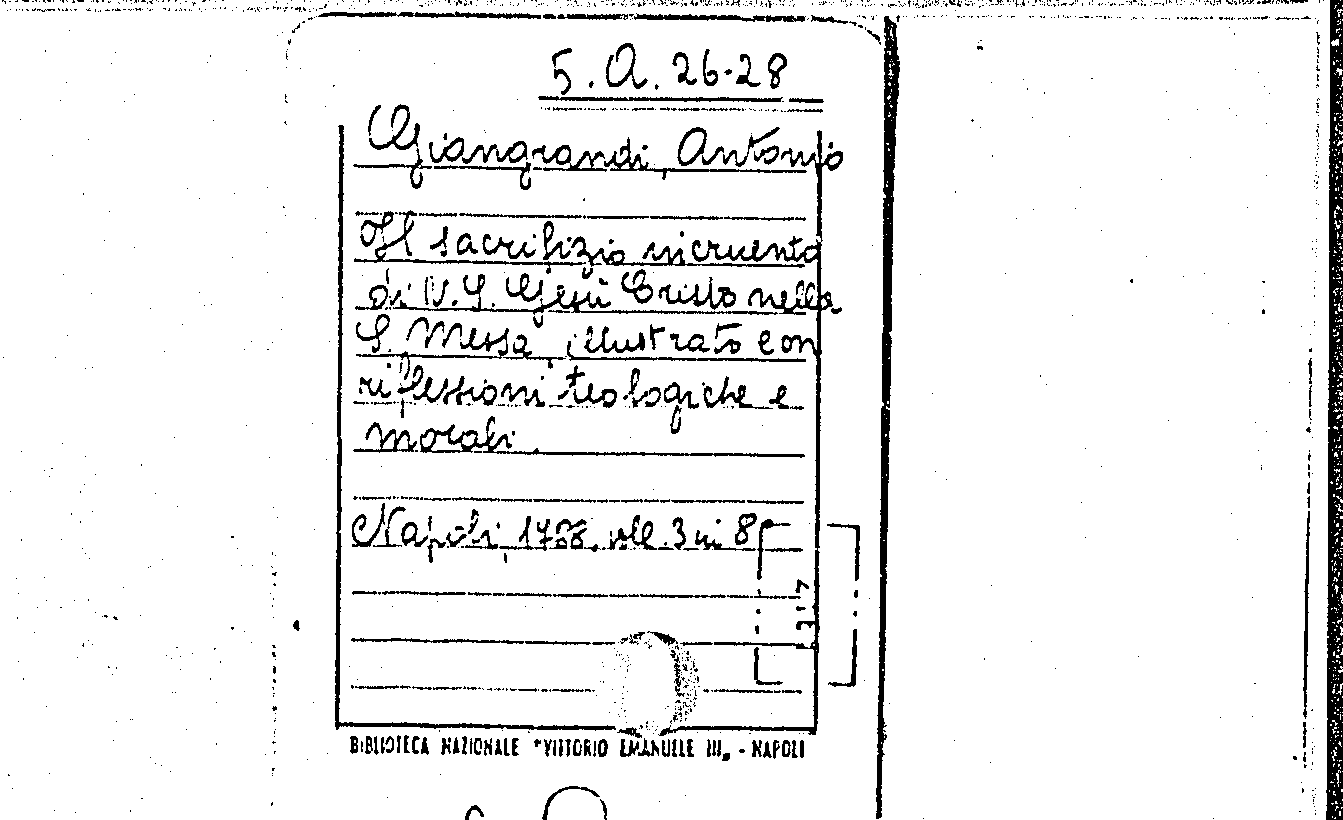 5.A.26-28
Giangrandi, Antonio
Il sacrifizio incruento
di N. S. Gesù Cristo nella
S. Messa, illustrato con
riflessioni teologiche e
morali.
Napoli, 1788. voll. 3 in 8º
BIBLIOTECA NAZIONALE "VITTORIO EMANUELE III„ - NAPOLI